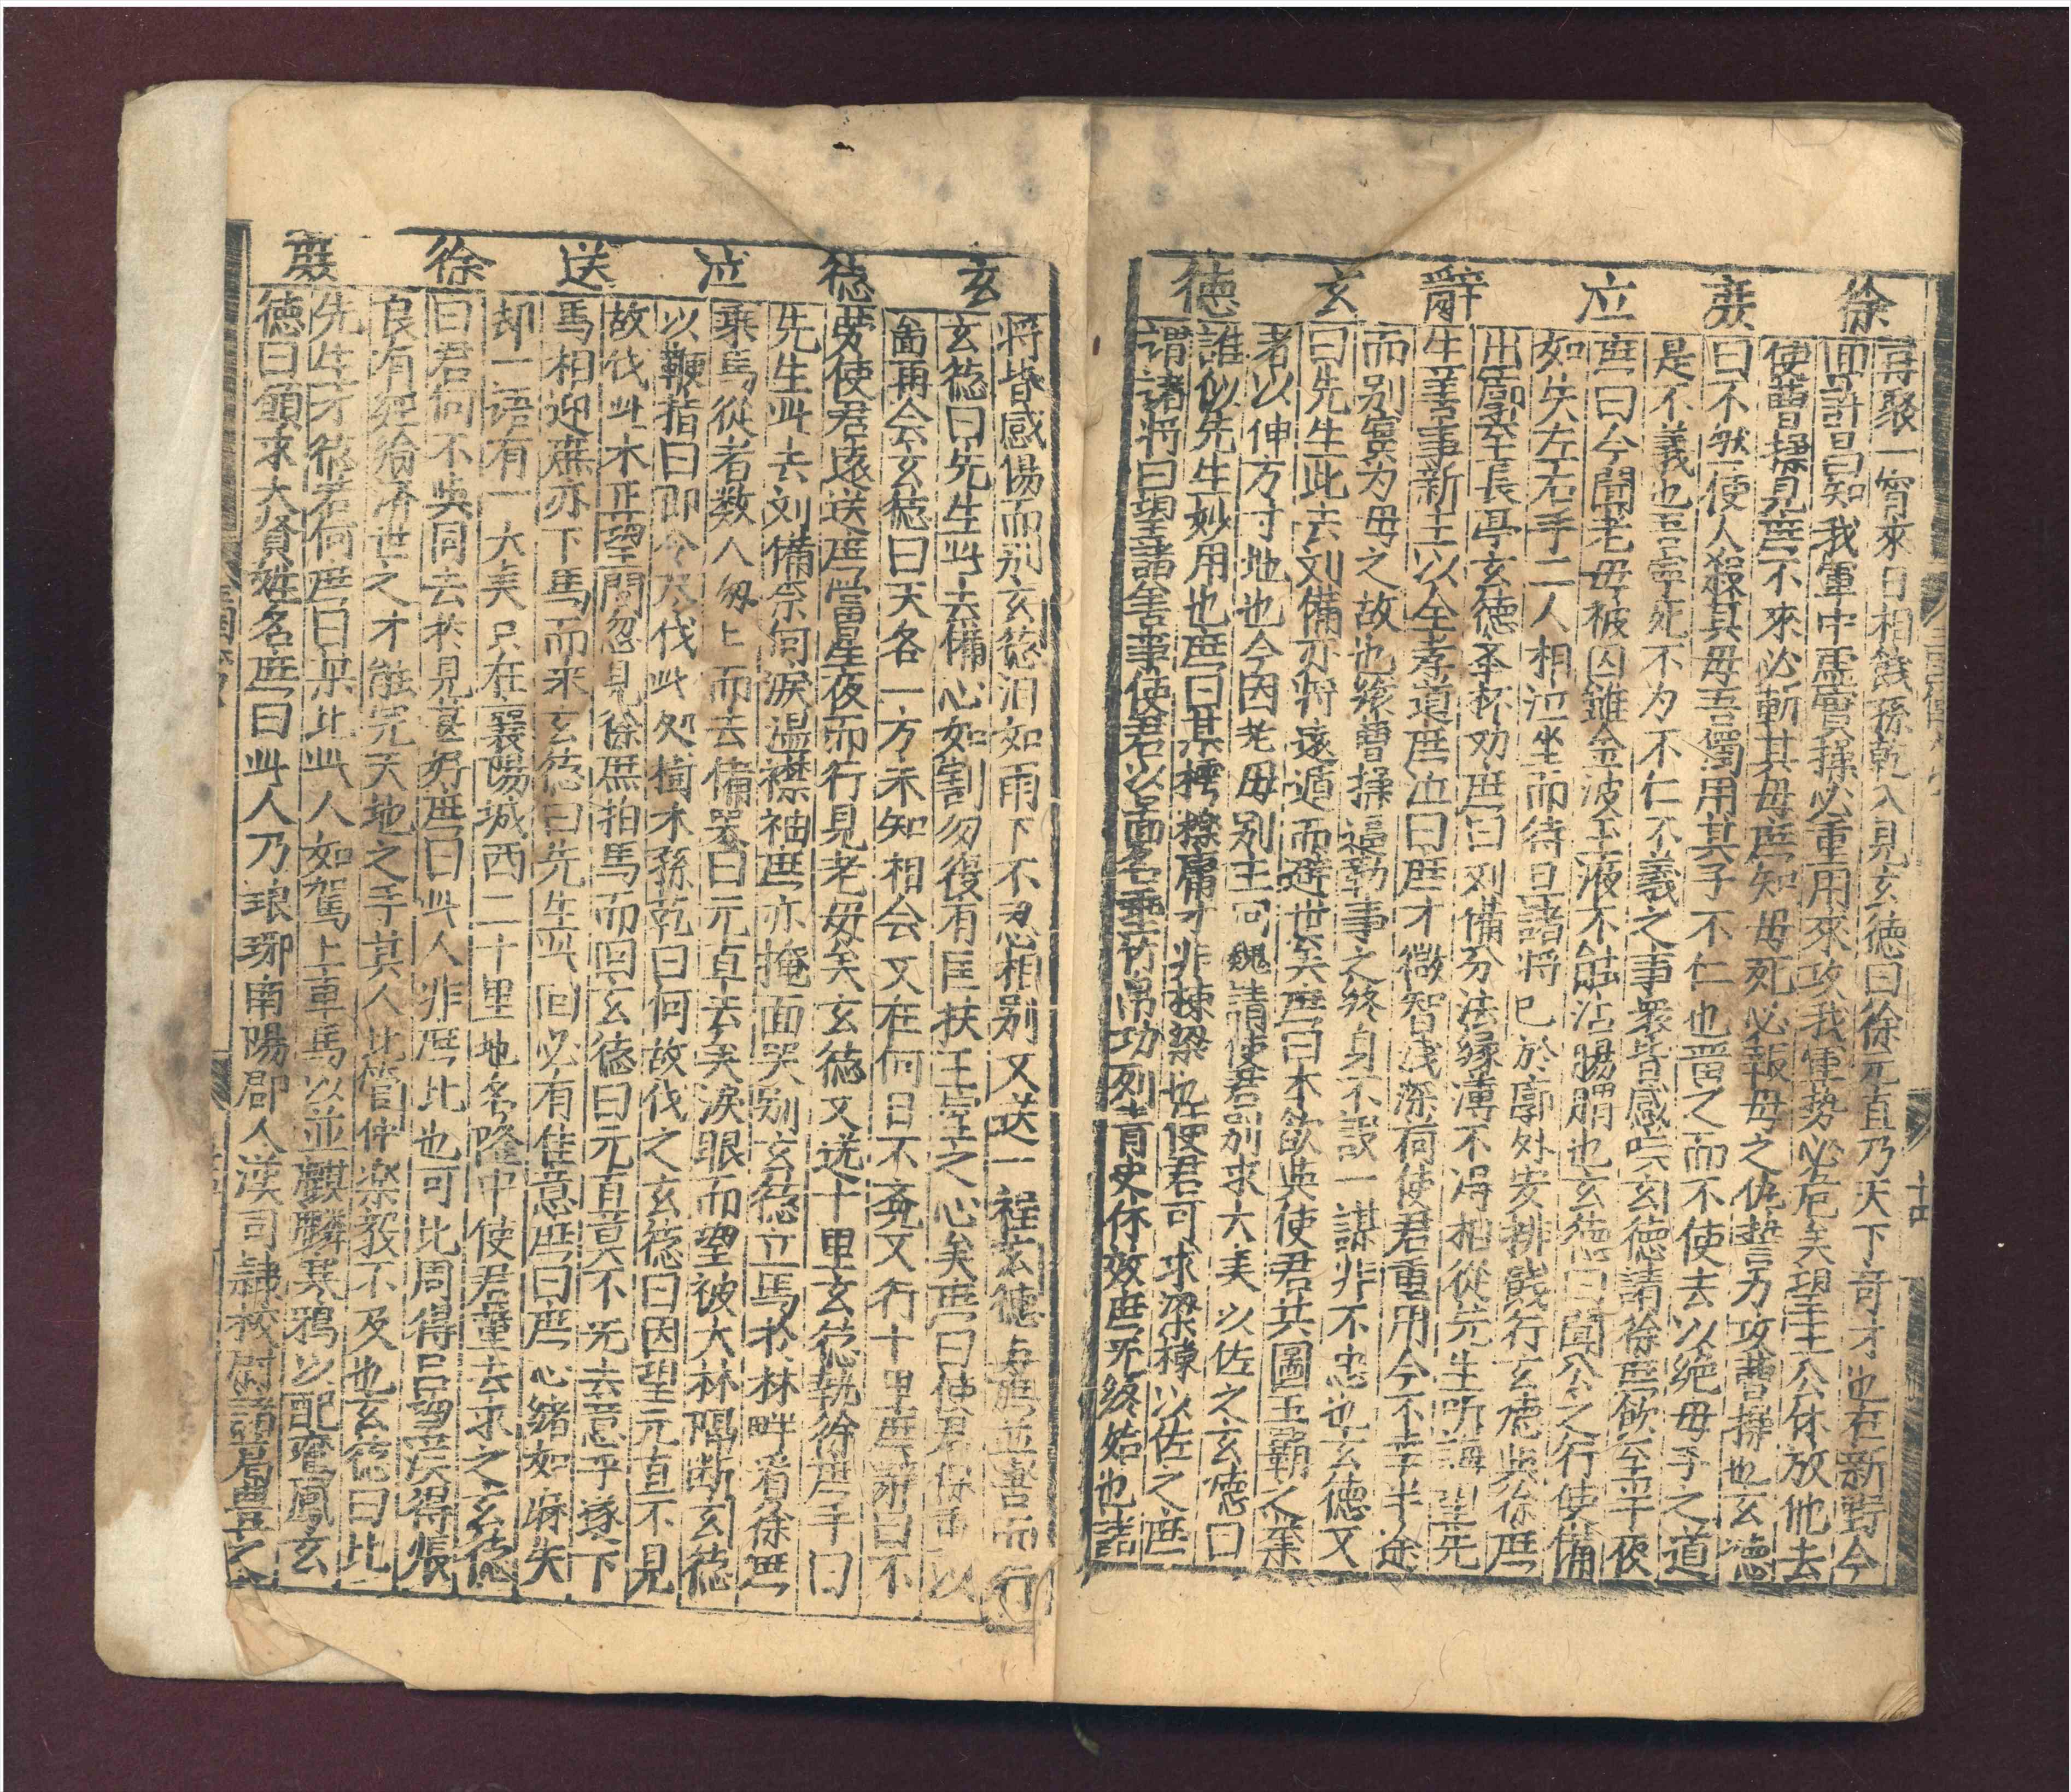 徐庶泣辭玄德
再聚一宵來日相餞孫乾入見玄德曰徐元直乃天下奇才也在新野今
面許曰知我軍中虛實操必重用來攻我軍勢必危矣望主公休放他去
使曹操見庶不來必斬其母庶知母死必報母之仇誓力攻曹操也玄德
曰不然便人殺其母吾獨用其子不仁也畱之而不使去以絕母子之道
是不義也吾寧死不为不仁不義之事衆皆感嘆玄德請徐庶飲至半夜
庶曰今聞老母被囚雖金波玉液不能沾腸胃也玄德曰聞公之行使備
如失左右手二人相泣坐而待旦諸將已於郭外安排餞行玄德與徐庶
出廓至長亭玄德奉杯劝庶曰刘備分浅緣薄不得相從先生所誨望先
生善事新主以全孝道庶泣曰庶才微智浅深荷使君重用今不幸半途
而别寔为母之故也縱曹操逼勒事之終身不設一謀非不忠也玄德又
曰先生此去刘備亦将遠遁而避世矣庶曰本欲與使君共圖王霸之業
者以伸方寸地也今因老母别主回魏請使君别求大夫以佐之玄德曰
誰似先生妙用也庶曰某樗櫟庸才非棟梁也使君可求梁棟以佐之庶
謂諸将曰望諸善事使君以啚名垂竹帛功列青史休效庶无終始也諸
玄德泣送徐庶
将皆感傷而别玄德泪如雨下不忍相别又送一程玄德与庶並轡而行
玄德曰先生此去備心如割勿復有匡扶王室之心矣庶曰使君保重以
啚再会玄德曰天各一方未知相会又在何日不竟又行十里庶辞曰不
勞使君遠送庶當星夜而行見老母矣玄德又送十里玄德執徐庶手曰
先生此去刘備奈何淚湿襟袖庶亦掩面哭别玄德立馬於林畔看徐庶
乘馬從者数人匆匕而去備哭曰元直去矣淚眼而望被大林隔断玄德
以鞭指曰即今尽伐此处樹木孫乾曰何故伐之玄德曰因望元直不見
故伐此木正望間忽見徐庶拍馬而回玄德曰元直莫不无去意乎遂下
馬相迎庶亦下馬而来玄德曰先生此回必有佳意庶曰庶心緒如麻失
却一語有一大夫只在襄陽城西二十里地名隆中使君童去求之玄德
曰君何不與同去求見甚好庶曰此人非庶比也可比周得呂望漢得張
良有經綸济世之才能完天地之手其人比管仲樂毅不及也玄德曰比
先生才德若何庶曰某比此人如駑上車馬以並麒麟寒鴉以配鸞鳳玄
德曰願求大賢姓名庶曰此人乃琅琊南陽郡人漢司隷校尉諸葛豊之